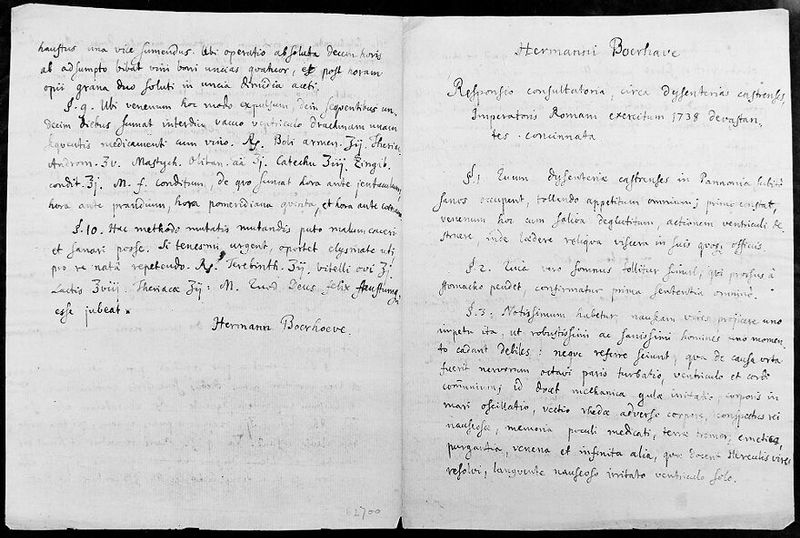 haustus una vice sumendus. Ubi operatio absoluta decem horis
ab adsumpto bibat vini boni uncias quatuor, et post horam
opii grana duo soluti in uncia dimidia aceti.
§. 9. Ubi venenum hoc modo expulsum, dein sequentibus un-
decim diebus sumat interdiu vacuo ventriculo drachmam unam
sequentis medicamenti cum vino. Rs. Boli armen. Ʒij. Theriac.
Androm. Ʒv. Mastych. Oliban. aa Ʒj. Catechu Ʒiij. Zingib.
condit. Ʒj. M. f. conditum, de quo sumat hora ante jentaculum,
hora ante prandium, hora pomeridiana quinta, et hora ante coenam
§. 10. Hac methodo mutatis mutandis puto malum caveri
et sanari posse. Si tenesmi urgent, oportet clysmate uti,
pro re nata repetendo. Rs. Terebinth. Ʒij, vitelli ovi Ʒj
Lactis Ʒviij Theriacae Ʒij: M. Quod Deus felix faustumq;
esse jubeat.
Hermann Boerhoeve.
2700
Hermanni Boerhave
Responsio consultatoria, circa dysenterias castrenses,
Imperatoris Romani exercitum 1738 devastan-
tes. concinnata
§. 1 Quum dysenteriae castrenses in Pannonia subito
sanos occupent, tollendo appetitum omnium; primo constat,
venenum hoc cum saliva deglutitum, actionem ventriculi de-
struere, inde laedere reliqua viscera in suis quoq; officiis.
§. 2. Quia vero somnus tollitur simul, qui prorsus à
stomacho pendet, confirmatur prima sententia omnino.
§. 3. Notissimum habetur, nauseam uno
impetu ita, ut robustissimi ac sanissimi homines uno momen-
to cadant debiles: neque referre sciunt, qua de causa orta
fuerit nervorum octavi paris turbatio, ventriculo et cordi
communium; id docet mechanica gulae irritatio, corporis in
mari oscillatio, vectio rhedae adverso corpore, conspectus rei
nauseosae, memoria poculi medicati, terrae tremor, emetica,
purgantia, venena et infinita alia, quae docent Herculis vires
resolvi, languente nauseoso irritato ventriculo solo.